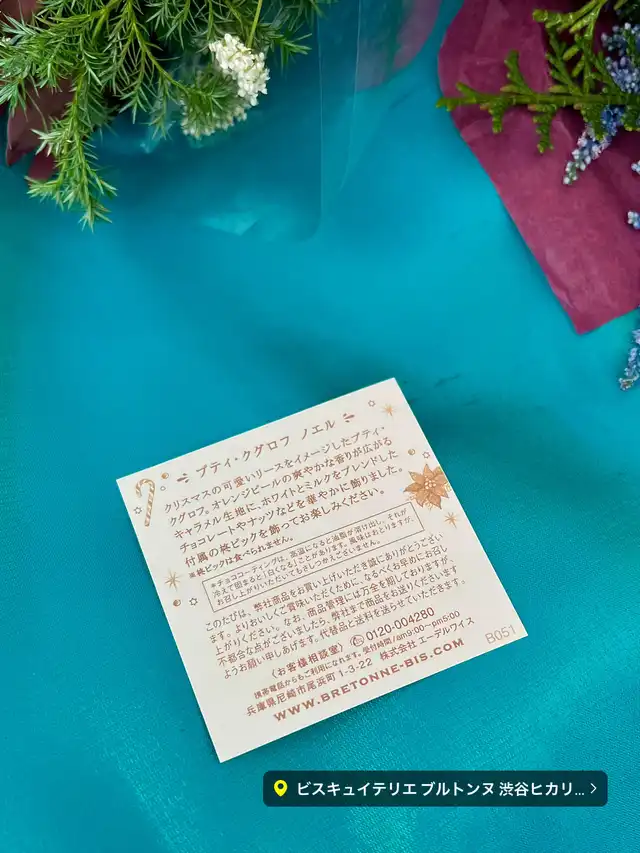 プティ・クグロフ ノエル
クリスマスの可愛いリースをイメージしたプティ・
クグロフ。オレンジピールの爽やかな香りが広がる
キャラメル生地に、ホワイトとミルクをブレンドした
チョコレートやナッツなどを華やかに飾りました。
付属の柊ピックを飾ってお楽しみください。
※柊ピックは食べられません。
*チョココーティングは、高温になると油脂が溶け出し、それが
冷えて固まると白くなることがあります。風味はおとりますが、
お召し上がりいただいてもさしつかえございません。
このたびは、弊社商品をお買い上げいただき誠にありがとうござい
ます。よりおいしくご賞味いただくために、なるべくお早めにお召し
上がりください。なお、商品管理には万全を期しておりますが、
不都合な点がございましたら、弊社まで商品をお送りくださいます
ようお願い申しあげます。代替品と送料を送らせていただきます。
〈お客様相談室〉 0120-004280
携帯電話からもご利用になれます。受付時間/am9:00~pm5:00
兵庫県尼崎市尾浜町1-3-22 株式会社 エーデルワイス
WWW.BRETONNE-BIS.COM
B051
ビスキュイテリエ ブルトンヌ 渋谷ヒカリ...